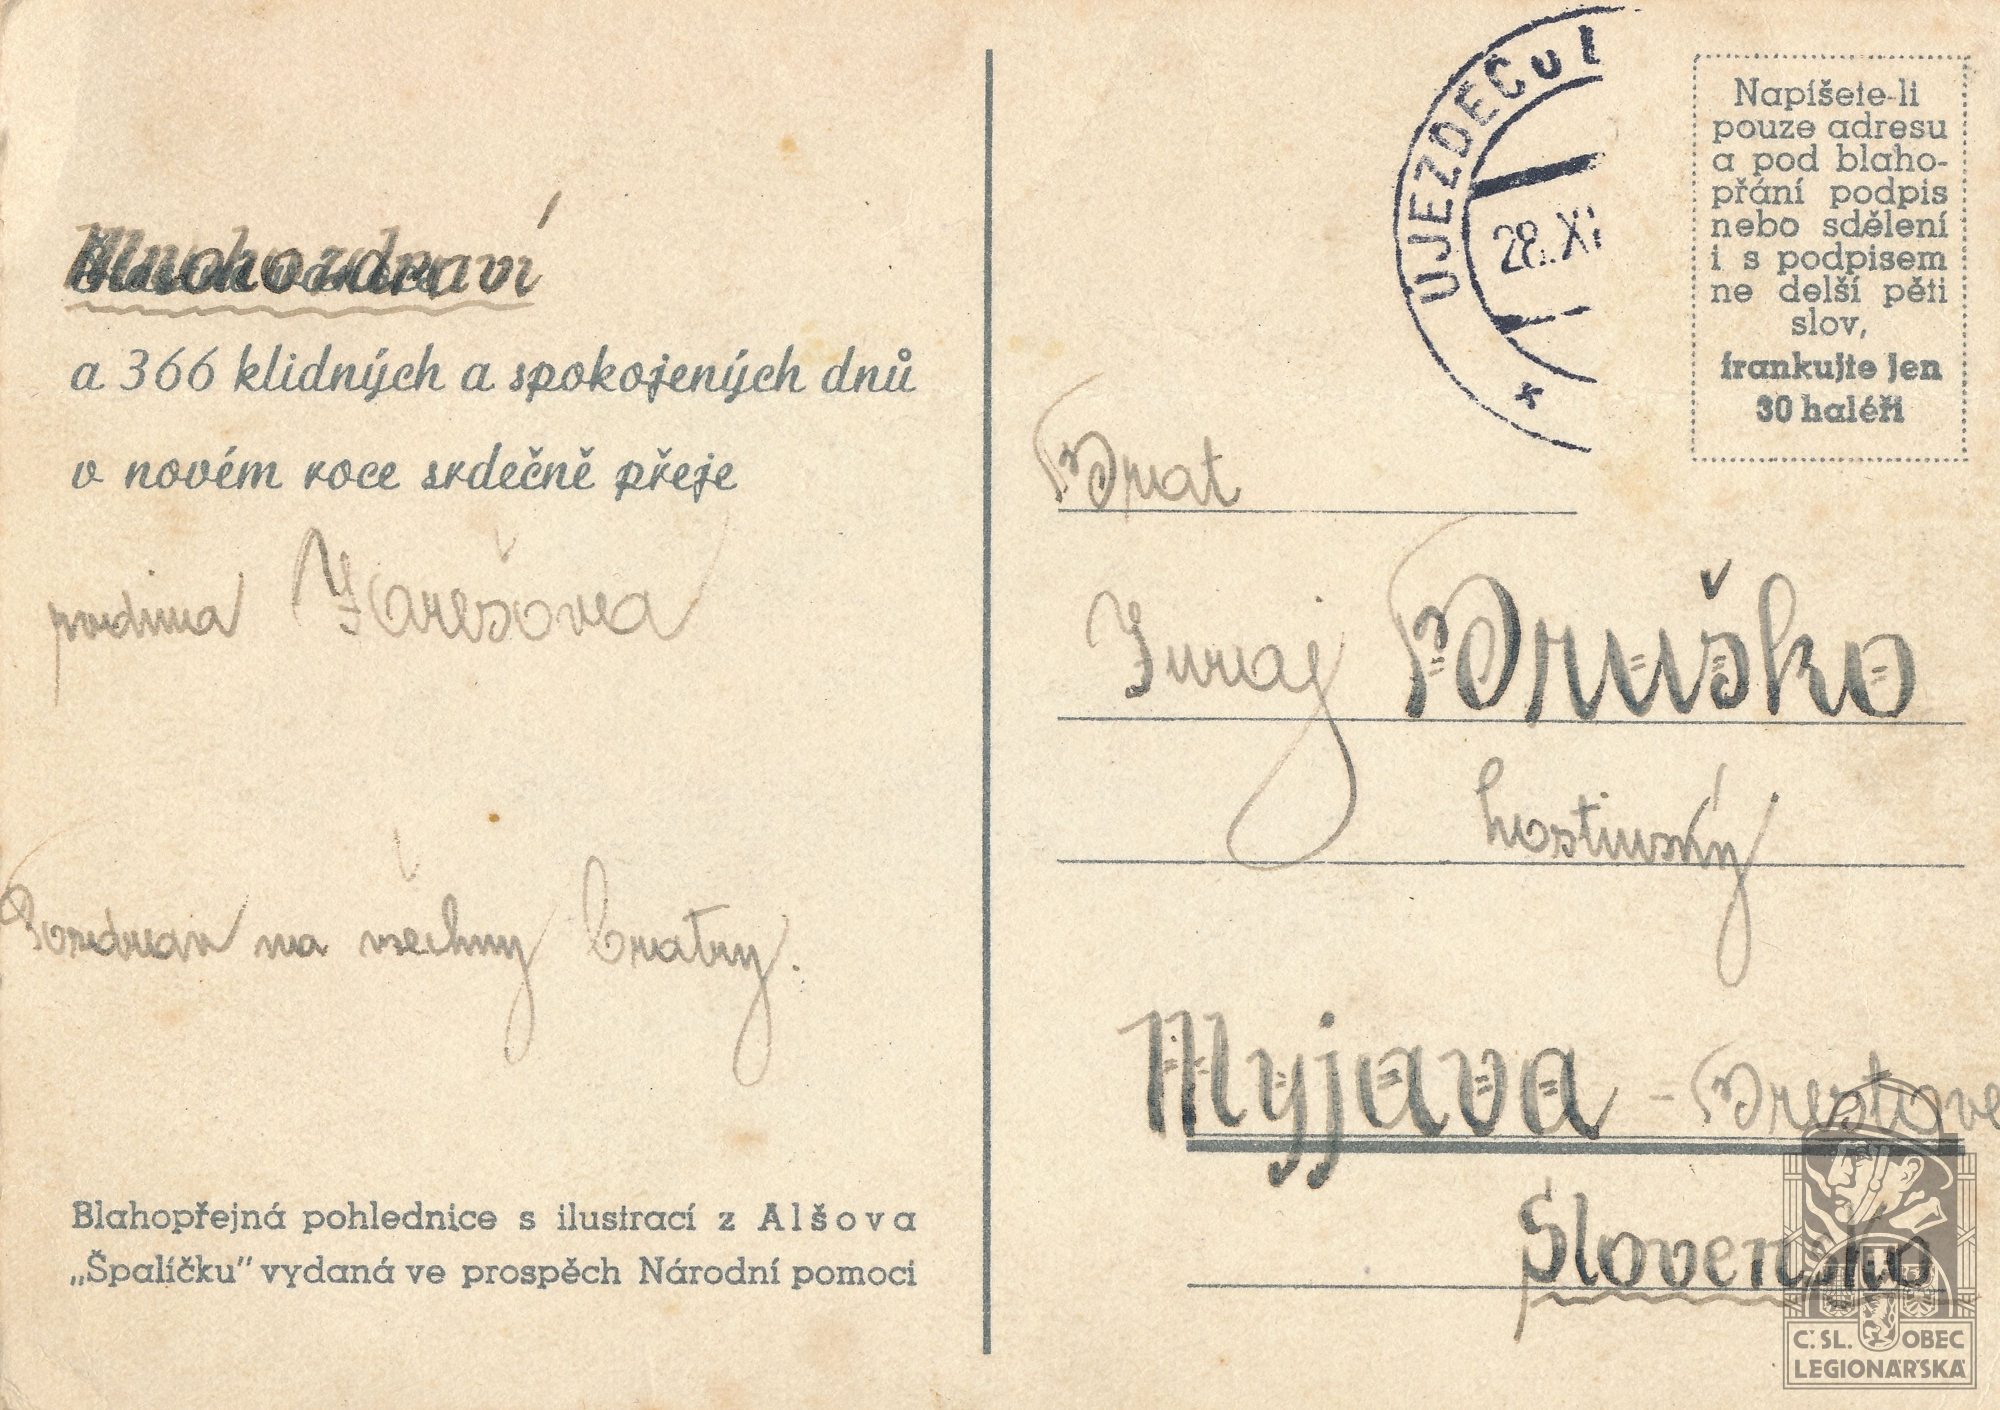 Mnoho zdraví
a 366 klidných a spokojených dnů
v novém roce srdečně přeje
rodina Jarešova
Pozdrav na všechny bratry.
Blahopřejná pohlednice s ilustrací z Alšova
„Špalíčku" vydaná ve prospěch Národní pomoci
UJEZDEC u L
28. XI
Napíšete-li
pouze adresu
a pod blaho-
přání podpis
nebo sdělení
i s podpisem
ne delší pěti
slov,
frankujte jen
30 haléři
Brat
Juraj Druško
hostinský
Myjava - Brestove
Slovensko
Č. SL. OBEC
LEGIONÁŘSKÁ